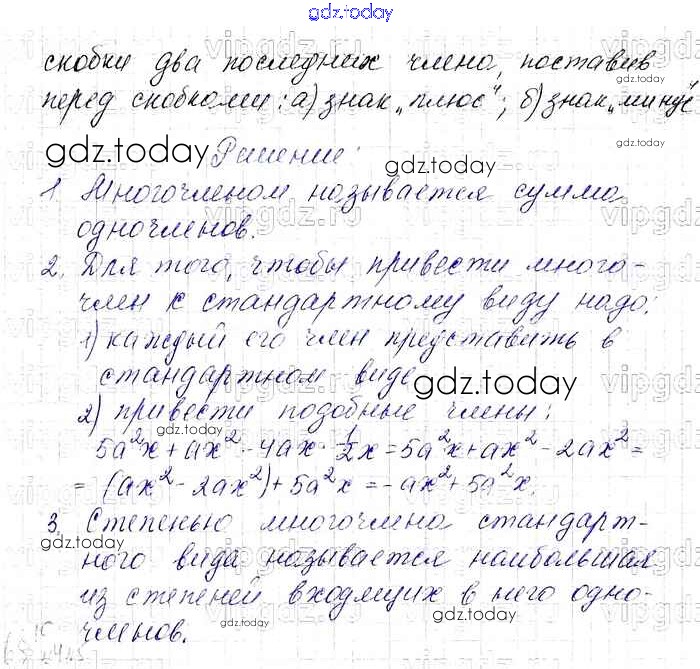 gdz.today
скобки два последних члена, поставив
перед скобками: а) знак „плюс“; б) знак „минус
gdz.today Решение:
1. Многочленом называется сумма
одночленов.
2. Для того, чтобы привести много-
член к стандартному виду надо:
1) каждый его член представить в
стандартном виде
gdz.today
2) привести подобные члены:
5a²x + ax² - 4ax · 1/2 x = 5a²x + ax² - 2ax² =
= (ax² - 2ax²) + 5a²x = -ax² + 5a²x.
3. Степенью многочлена стандарт-
ного вида называется наибольшая
из степеней входящих в него одно-
членов.